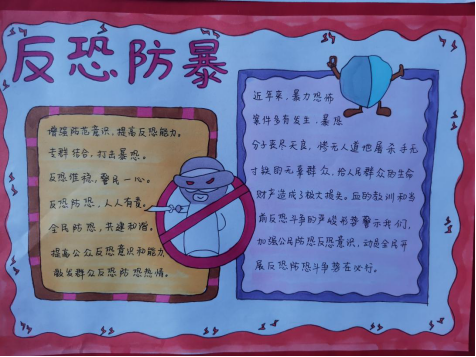 反恐防暴
增强防范意识，提高反恐能力。
去群结合，打击暴恐。
反恐维稳，警民一心。
反恐防恐，人人有责。
全民防恐，共建和谐。
提高公众反恐意识和能力，
激发群众反恐防恐热情。
近年来，暴力恐怖
案件多有发生，暴恐
分子丧尽天良，惨无人道地屠杀手无
寸铁的无辜群众，给人民群众的生命
财产造成了极大损失。血的教训和当
前反恐斗争的严峻形势警示我们，
加强公民防恐反恐意识，动员全民开
展反恐防恐斗争势在必行。